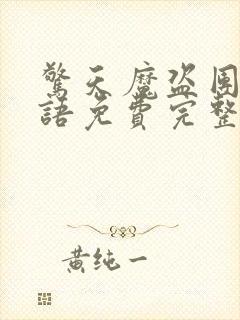 驚天魔盗团
語免費完整
黄纯一